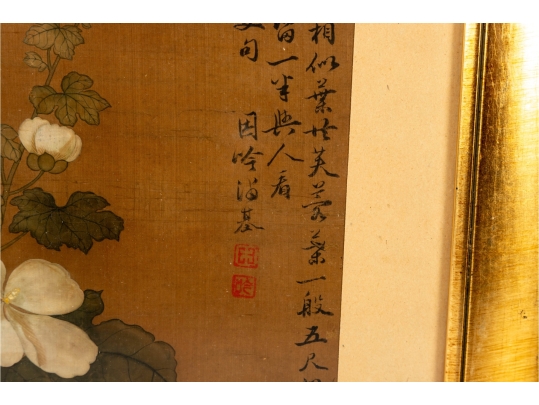 相似葉共芙蓉葉一般五尺
留一半與人看
句
因吟